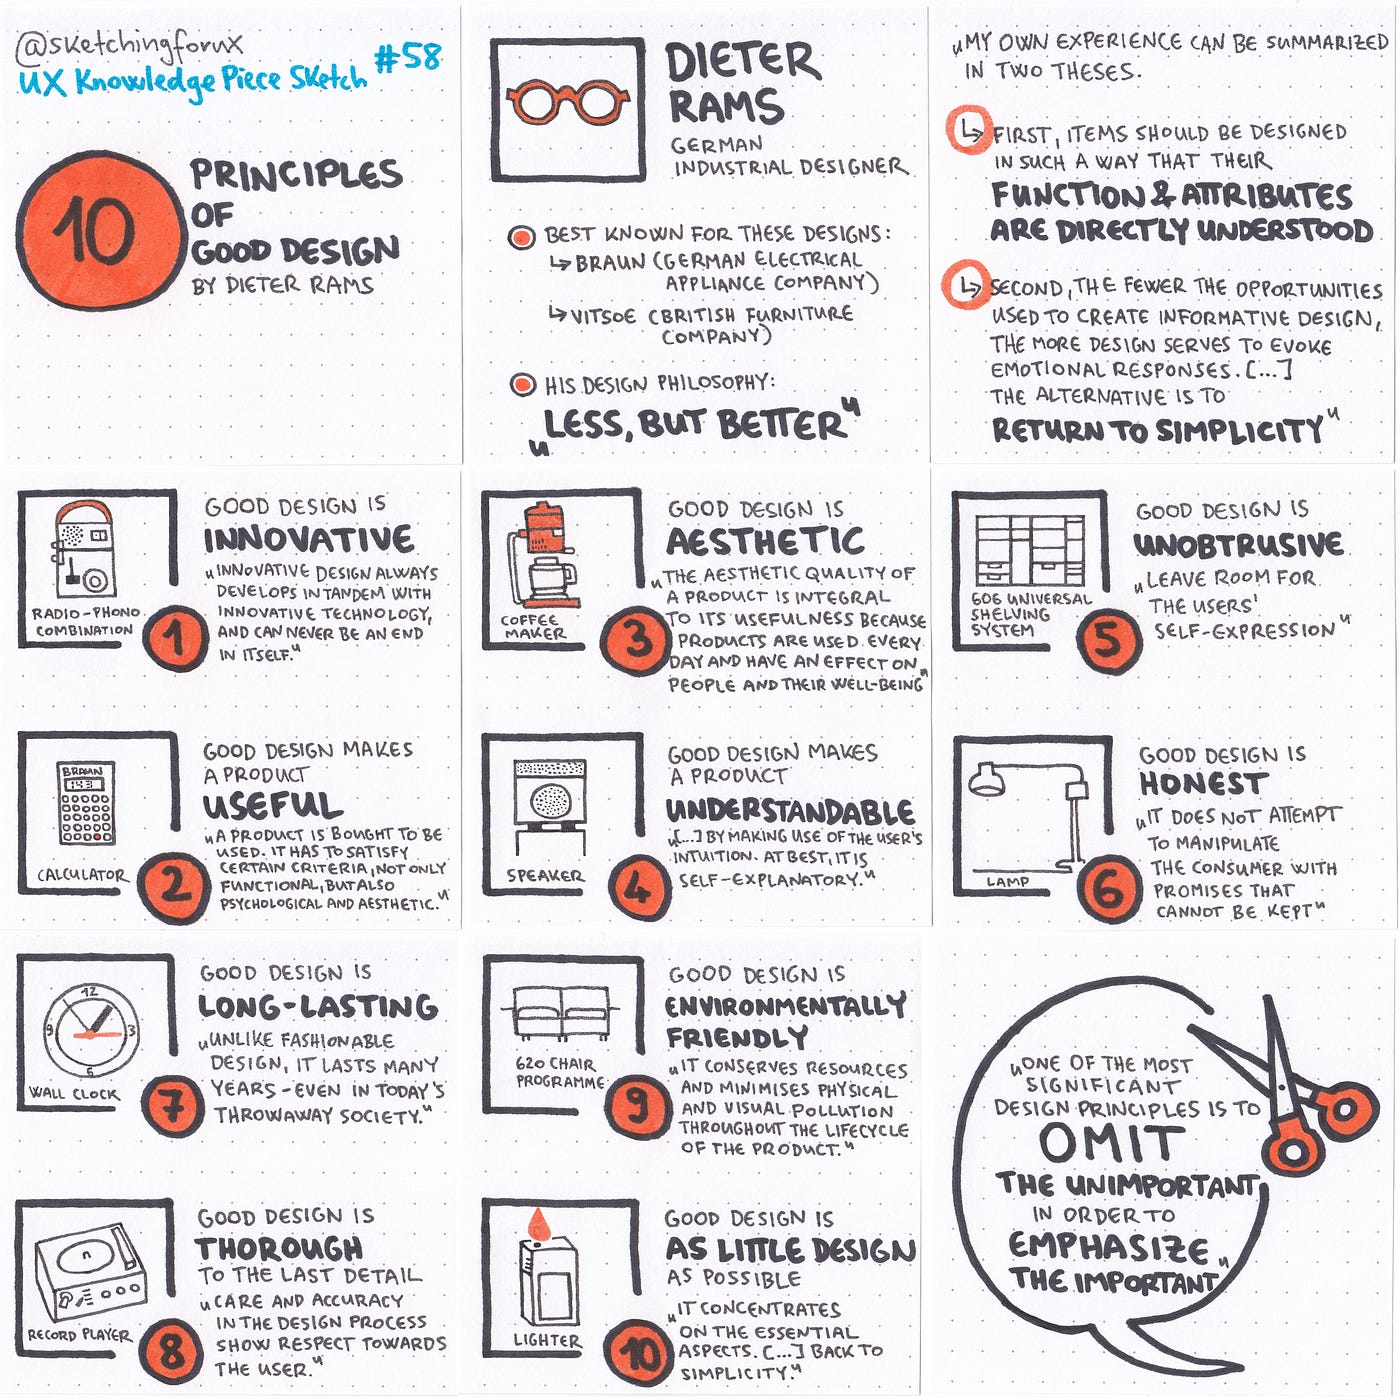 @sketchingforux
UX Knowledge Piece Sketch #58
10
PRINCIPLES
OF
GOOD DESIGN
BY DIETER RAMS
DIETER
RAMS
GERMAN
INDUSTRIAL DESIGNER
BEST KNOWN FOR THESE DESIGNS:
↳ BRAUN (GERMAN ELECTRICAL
APPLIANCE COMPANY)
↳ VITSOE (BRITISH FURNITURE
COMPANY)
HIS DESIGN PHILOSOPHY:
„LESS, BUT BETTER"
„MY OWN EXPERIENCE CAN BE SUMMARIZED
IN TWO THESES.
↳ FIRST, ITEMS SHOULD BE DESIGNED
IN SUCH A WAY THAT THEIR
FUNCTION & ATTRIBUTES
ARE DIRECTLY UNDERSTOOD
↳ SECOND, THE FEWER THE OPPORTUNITIES
USED TO CREATE INFORMATIVE DESIGN,
THE MORE DESIGN SERVES TO EVOKE
EMOTIONAL RESPONSES. [...]
THE ALTERNATIVE IS TO
RETURN TO SIMPLICITY"
RADIO-PHONO
COMBINATION
1
GOOD DESIGN IS
INNOVATIVE
„INNOVATIVE DESIGN ALWAYS
DEVELOPS IN TANDEM WITH
INNOVATIVE TECHNOLOGY,
AND CAN NEVER BE AN END
IN ITSELF."
BRAUN
1431
CALCULATOR
2
GOOD DESIGN MAKES
A PRODUCT
USEFUL
„A PRODUCT IS BOUGHT TO BE
USED. IT HAS TO SATISFY
CERTAIN CRITERIA, NOT ONLY
FUNCTIONAL, BUT ALSO
PSYCHOLOGICAL AND AESTHETIC."
COFFEE
MAKER
3
GOOD DESIGN IS
AESTHETIC
„THE AESTHETIC QUALITY OF
A PRODUCT IS INTEGRAL
TO ITS USEFULNESS BECAUSE
PRODUCTS ARE USED EVERY
DAY AND HAVE AN EFFECT ON
PEOPLE AND THEIR WELL-BEING"
SPEAKER
4
GOOD DESIGN MAKES
A PRODUCT
UNDERSTANDABLE
„[...] BY MAKING USE OF THE USER'S
INTUITION. AT BEST, IT IS
SELF-EXPLANATORY."
606 UNIVERSAL
SHELVING
SYSTEM
5
GOOD DESIGN IS
UNOBTRUSIVE
„LEAVE ROOM FOR
THE USERS'
SELF-EXPRESSION"
LAMP
6
GOOD DESIGN IS
HONEST
„IT DOES NOT ATTEMPT
TO MANIPULATE
THE CONSUMER WITH
PROMISES THAT
CANNOT BE KEPT"
12
9 3
6
WALL CLOCK
7
GOOD DESIGN IS
LONG-LASTING
„UNLIKE FASHIONABLE
DESIGN, IT LASTS MANY
YEARS - EVEN IN TODAY'S
THROWAWAY SOCIETY."
RECORD PLAYER
8
GOOD DESIGN IS
THOROUGH
TO THE LAST DETAIL
„CARE AND ACCURACY
IN THE DESIGN PROCESS
SHOW RESPECT TOWARDS
THE USER."
620 CHAIR
PROGRAMME
9
GOOD DESIGN IS
ENVIRONMENTALLY
FRIENDLY
„IT CONSERVES RESOURCES
AND MINIMISES PHYSICAL
AND VISUAL POLLUTION
THROUGHOUT THE LIFECYCLE
OF THE PRODUCT."
LIGHTER
10
GOOD DESIGN IS
AS LITTLE DESIGN
AS POSSIBLE
„IT CONCENTRATES
ON THE ESSENTIAL
ASPECTS. [...] BACK TO
SIMPLICITY."
„ONE OF THE MOST
SIGNIFICANT
DESIGN PRINCIPLES IS TO
OMIT
THE UNIMPORTANT
IN ORDER TO
EMPHASIZE
THE IMPORTANT"